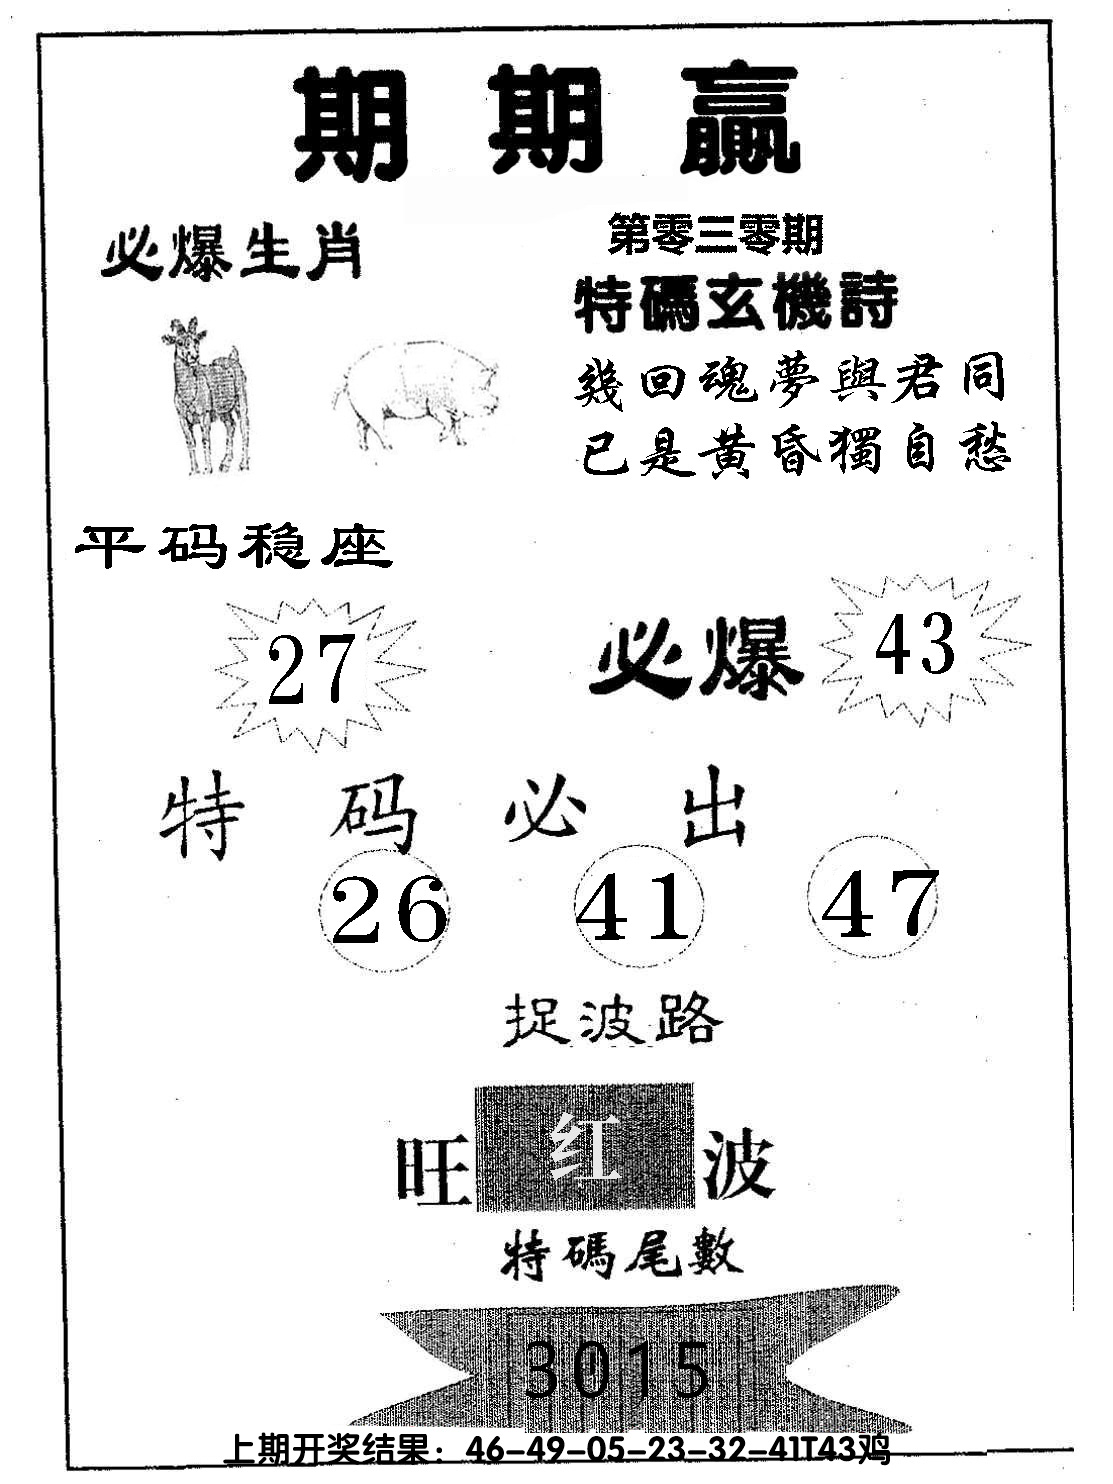 期期赢
必爆生肖
第零三零期
特碼玄機詩
幾回魂夢與君同
已是黄昏獨自愁
平码稳座
27
必爆
43
特码必出
26 41 47
捉波路
旺红波
特碼尾數
3015
上期开奖结果：46-49-05-23-32-41T43鸡